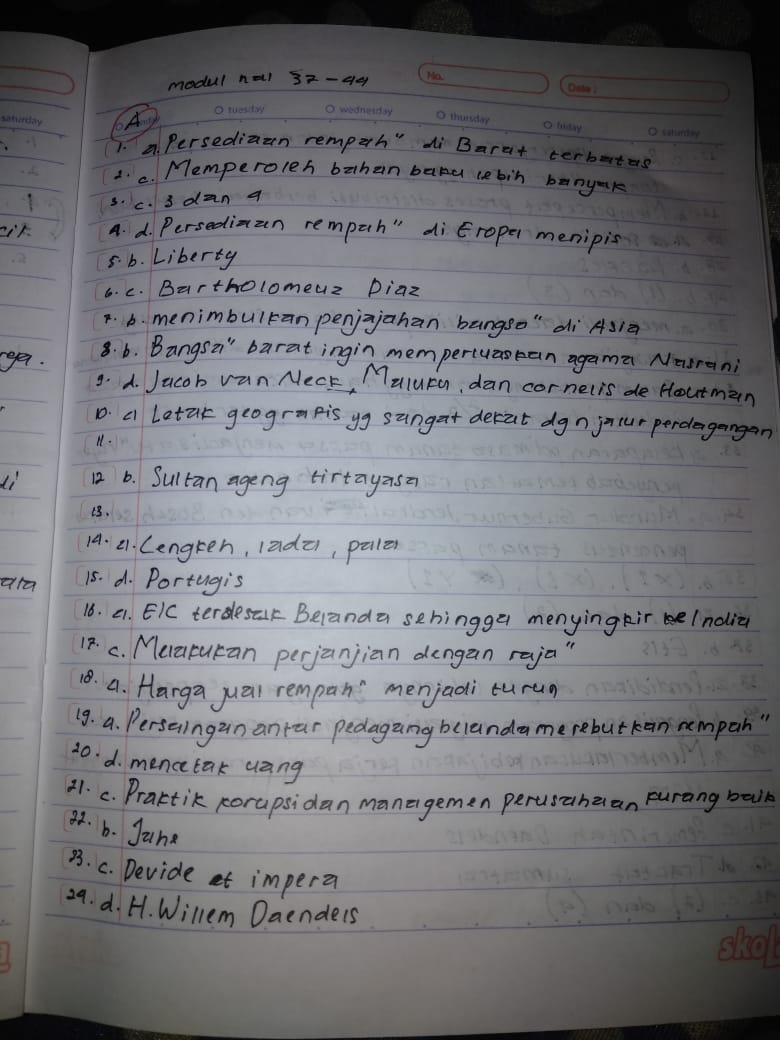 modul hal 37-44
No.
Date :
saturday
A
tuesday
wednesday
thursday
friday
saturday
1. a. Persediaan rempah" di Barat terbatas
2. c. Memperoleh bahan baku lebih banyak
3. c. 3 dan 4
4. d. Persediaan rempah" di Eropa menipis
5. b. Liberty
6. c. Bartholomeuz Diaz
7. b. menimbulkan penjajahan bangsa" di Asia
8. b. Bangsa" barat ingin memperluaskan agama Nasrani
9. d. Jacob van Neck, Maluku, dan cornelis de Houtman
10. a Letak geografis yg sangat dekat dgn jalur perdagangan
11.
12 b. Sultan ageng tirtayasa
13.
14. a. Cengkeh, lada, pala
15. d. Portugis
16. a. EIC terdesak Belanda sehingga menyingkir ke India
17. c. Melakukan perjanjian dengan raja"
18. a. Harga jual rempah" menjadi turun
19. a. Persaingan antar pedagang belanda merebutkan rempah"
20. d. mencetak uang
21. c. Praktik korupsi dan managemen perusahaan kurang baik
22. b. Jahe
23. c. Devide et impera
24. d. H. Willem Daendels